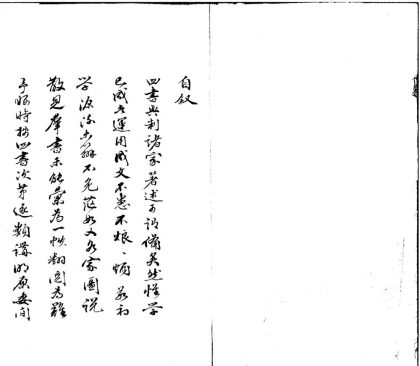 自叙
四書典制諸家著述可謂備矣然性學
已成者運用成文不患不粮粮惟初
学源流未辨不免茫如又各家圖説
散見羣書未能彙為一帙翻閱為難
予暇時按四書次第逐類講明原委間